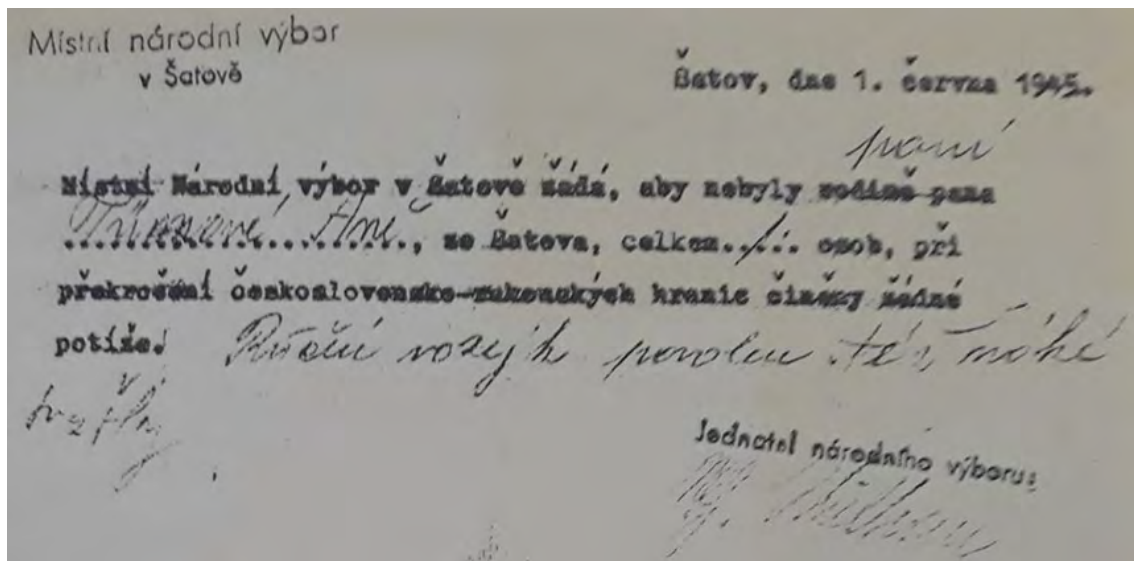 Místní národní výbor
v Šatově
Šatov, dne 1. června 1945.
paní
Místní Národní výbor v Šatově žádá, aby nebyly rodině pana
...................., ze Šatova, celkem ./.. osob, při
překročení československo-rakouských hranic činěny žádné
potíže. Ruční vozejk povolen též
Jednatel národního výboru: